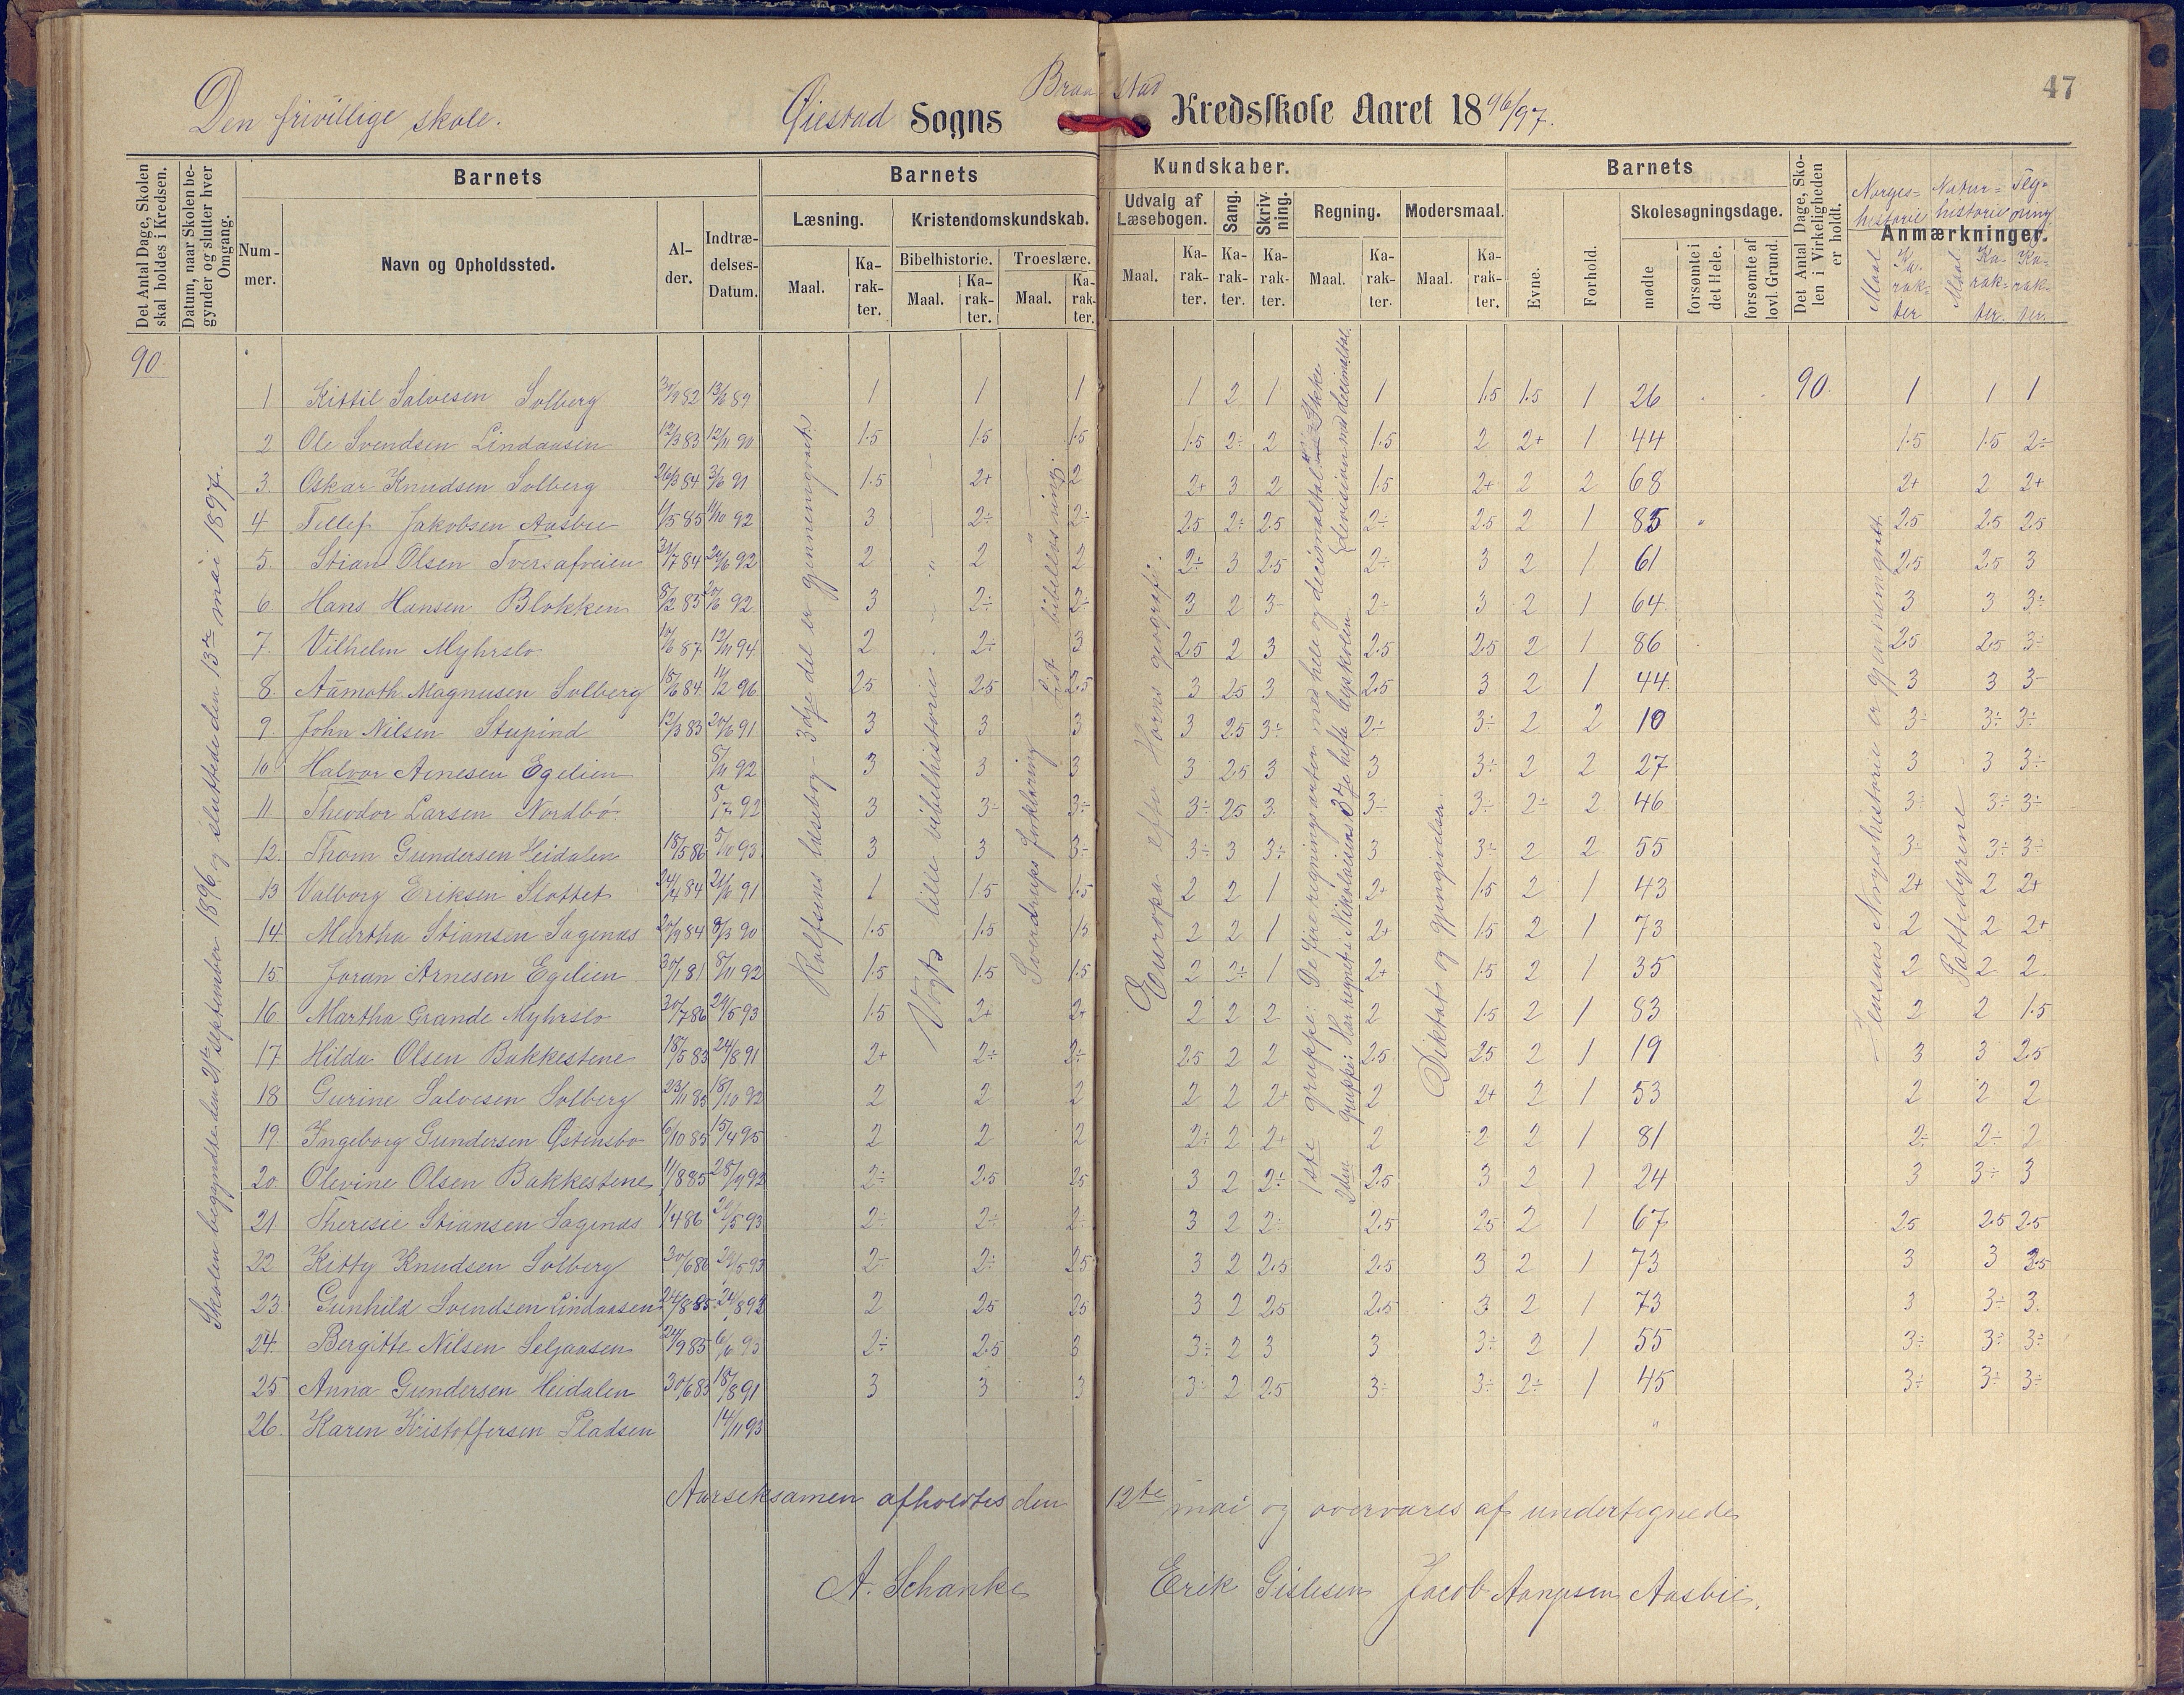 47
Den frivillige skole. Øiestad Sogns Braastad Kredsskole Aaret 1896/97.
Det Antal Dage, Skolen skal holdes i Kredsen.
Datum, naar Skolen begynder og slutter hver Omgang.
Barnets
Nummer.
Navn og Opholdssted.
Alder.
Indtrædelses-Datum.
Barnets Kundskaber.
Læsning. Maal. Karakter.
Kristendomskundskab.
Bibelhistorie. Maal. Karakter.
Troeslære. Maal. Karakter.
Udvalg af Læsebogen. Maal. Karakter.
Sang. Karakter.
Skrivning. Karakter.
Regning. Maal. Karakter.
Modersmaal. Maal. Karakter.
Barnets
Evne.
Forhold.
Skolesøgningsdage.
mødte
forsømte i det Hele.
forsømte af lovl. Grund.
Det Antal Dage, Skolen i Virkeligheden er holdt.
Anmærkninger.
Norges-historie Maal Karakter
Natur-historie Maal Karakter
Tegning Karakter
90.
Skolen begyndte den 21de september 1896 og sluttede den 13de mai 1897.
Rolfsens læsebog - 3dje del er gjennemgaaet.
Vogts lille bibelhistorie
Sverdrups forklaring
Lidt bibellæsning.
Europa efter Horns geografi.
1ste gruppe: De fire regningsarter med hele og decimaltal.
2den gruppe: Har regnet i Nikolaisens 3dje hefte
Diktat og gjengivelse
Jensens Norgeshistorie er gjennemgaaet.
Pattedyrene
1 Kittil Salvesen Solberg 1 1 1 1 2 1 1 1.5 1.5 1 26 90. 1 1 1
2 Ole Svendsen Lindaasen 12/3 83 12/11 90 1.5 1.5 1.5 1.5 2÷ 2 1.5 2 2+ 1 44 1.5 1.5 2÷
3. Oskar Knudsen Solberg 26/3 84 3/6 91 1.5 2+ 2 2+ 3 2 1.5 2+ 2 2 68 2+ 2 2+
4 Tellef Jakobsen Aasbie 11/5 85 11/10 92 3 2÷ 2÷ 2.5 2÷ 2.5 2÷ 2.5 2 1 85 2.5 2.5 2.5
5. Stian Olsen Tversafveien 31/7 84 2 2 2 2÷ 3 2.5 2÷ 3 2 1 61 2.5 2.5 3
6 Hans Hansen Blokken 8/2 85 3 2÷ 2÷ 3 2 3 2÷ 3 2 1 64 3 3 3÷
7. Vilhelm Myhrslo 12/11 94 2 2÷ 3 2.5 2 3 2.5 2.5 2 1 86 2.5 2.5 3÷
8. Aamoth Magnusen Solberg 18/6 84 11/12 96 2.5 2.5 2.5 3 2.5 3 2.5 3 2 1 44 3 3 3
9 John Nilsen Stupind 12/3 83 20/6 91 3 3 3 3 2.5 3÷ 2÷ 3÷ 2 2 10 3÷ 3÷ 3÷
10 Halvor Arnesen Egelien 8/11 92 3 3 3 3 2.5 3 3 3÷ 2 2 27 3 3 3÷
11 Theodor Larsen Nordbø 3 3÷ 3÷ 3÷ 2.5 3 3÷ 3÷ 2÷ 2 46 3÷ 3÷ 3÷
12. Thom Gundersen Heidalen 18/5 86 5/10 93 3 3 3÷ 3÷ 3 3÷ 3 3÷ 2 2 55 3÷ 3÷ 3÷
13 Valborg Eriksen Slottet 24/4 84 1 1.5 1.5 2 2 1 2+ 1.5 2 1 43 2+ 2 2+
14 Martha Stiansen Sagenæs 20/9 84 8/3 90 1.5 1.5 1.5 2 2 1 2+ 1.5 2 1 73 2 2 2+
15 Joran Arnesen Egelien 30/1 81 8/11 92 1.5 1.5 1.5 2 2÷ 1 2+ 1.5 2 1 35 2 2 2
16 Martha Grande Myhrslo 30/7 86 24/5 93 1.5 2+ 2+ 2 2 2 2 1.5 2 1 83 2 2 1.5
17 Hilda Olsen Bakkestene 18/5 83 24/8 91 2+ 2÷ 2÷ 2.5 2 2 2.5 2.5 2 1 19 3 3 2.5
18 Gurine Salvesen Solberg 23/11 85 18/10 92 2 2 2 2 2 2+ 2 2+ 2 1 53 2 2 2
19. Ingeborg Gundersen Østensbo 6/10 85 15/4 95 2 2 2 2÷ 2 2+ 2 2 2 1 81 2÷ 2÷ 2
20 Olevine Olsen Bakkestene 11/8 85 28/9 92 2÷ 2.5 2.5 3 2 2÷ 2.5 3 2 1 24 3 3÷ 3
21 Theresie Stiansen Sagenæs 1/4 86 2÷ 2÷ 2÷ 3 2 2÷ 2.5 2.5 2 1 67 2.5 2.5 2.5
22 Kitty Knudsen Solberg 30/6 86 24/5 93 2÷ 2÷ 2.5 3 2 2.5 2.5 3 2 1 73 3 3
23 Gunhild Svendsen Lindaasen 24/8 85 2 2.5 2.5 3 2 2.5 2.5 3 2 1 73 3 3÷ 3
24. Bergitte Nilsen Seljaasen 2÷ 2.5 3 3÷ 2 3 3 3÷ 2 1 55 3÷ 3÷ 3÷
25 Anna Gundersen Heidalen 30/6 83 18/8 91 3 3 3 3÷ 2 2.5 3÷ 3÷ 2÷ 1 45 3÷ 3÷ 3÷
26. Karen Kristoffersen Pladsen 14/11 93 "
Aarseksamen afholdtes den 12te mai og overvares af undertegnede
A. Schanke Erik Gislesen Jacob Aanesen Aasbie.